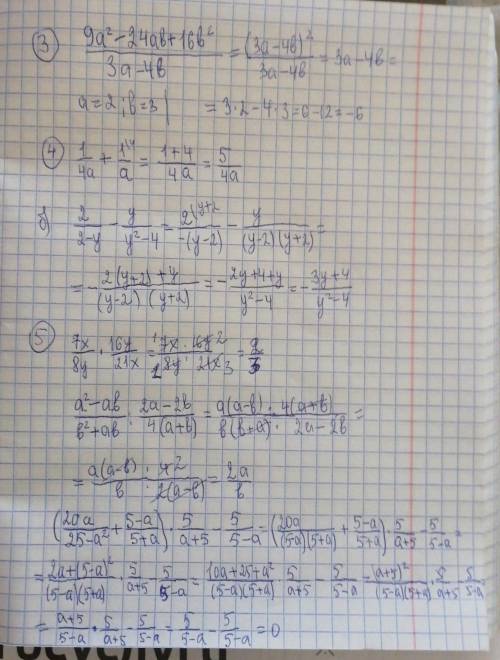 ③ (9a² - 24ab + 16b²)/(3a - 4b) = (3a - 4b)²/(3a - 4b) = 3a - 4b =
a = 2; b = 3 | = 3·2 - 4·3 = 6 - 12 = -6
④ 1/(4a) + 1^(4)/a = (1 + 4)/(4a) = 5/(4a)
б) 2/(2-y) - y/(y²-4) = 2^(y+2)/(-(y-2)) - y/((y-2)(y+2)) =
= -(2(y+2)+y)/((y-2)(y+2)) = -(2y+4+y)/(y²-4) = -(3y+4)/(y²-4)
⑤ 7x/(8y) · 16y/(21x) = (7x · 16y)/(8y · 21x) = 2/3
(a² - ab)/(b² + ab) : (2a - 2b)/(4(a+b)) = (a(a-b) · 4(a+b))/(b(b+a) · 2a-2b) =
= (a(a-b) · 4²)/(b · 2(a-b)) = 2a/b
(20a/(25-a²) + (5-a)/(5+a)) · 5/(a+5) - 5/(5-a) = (20a/((5-a)(5+a)) + (5-a)/(5+a)) · 5/(a+5) - 5/(5-a) =
= (2a+(5-a)²)/((5-a)(5+a)) · 5/(a+5) - 5/(5-a) = (10a+25+a²)/((5-a)(5+a)) · 5/(a+5) - 5/(5-a) = (a+5)²/((5-a)(5+a)) · 5/(a+5) - 5/(5-a) =
= (a+5)/(5-a) · 5/(a+5) - 5/(5-a) = 5/(5-a) - 5/(5-a) = 0